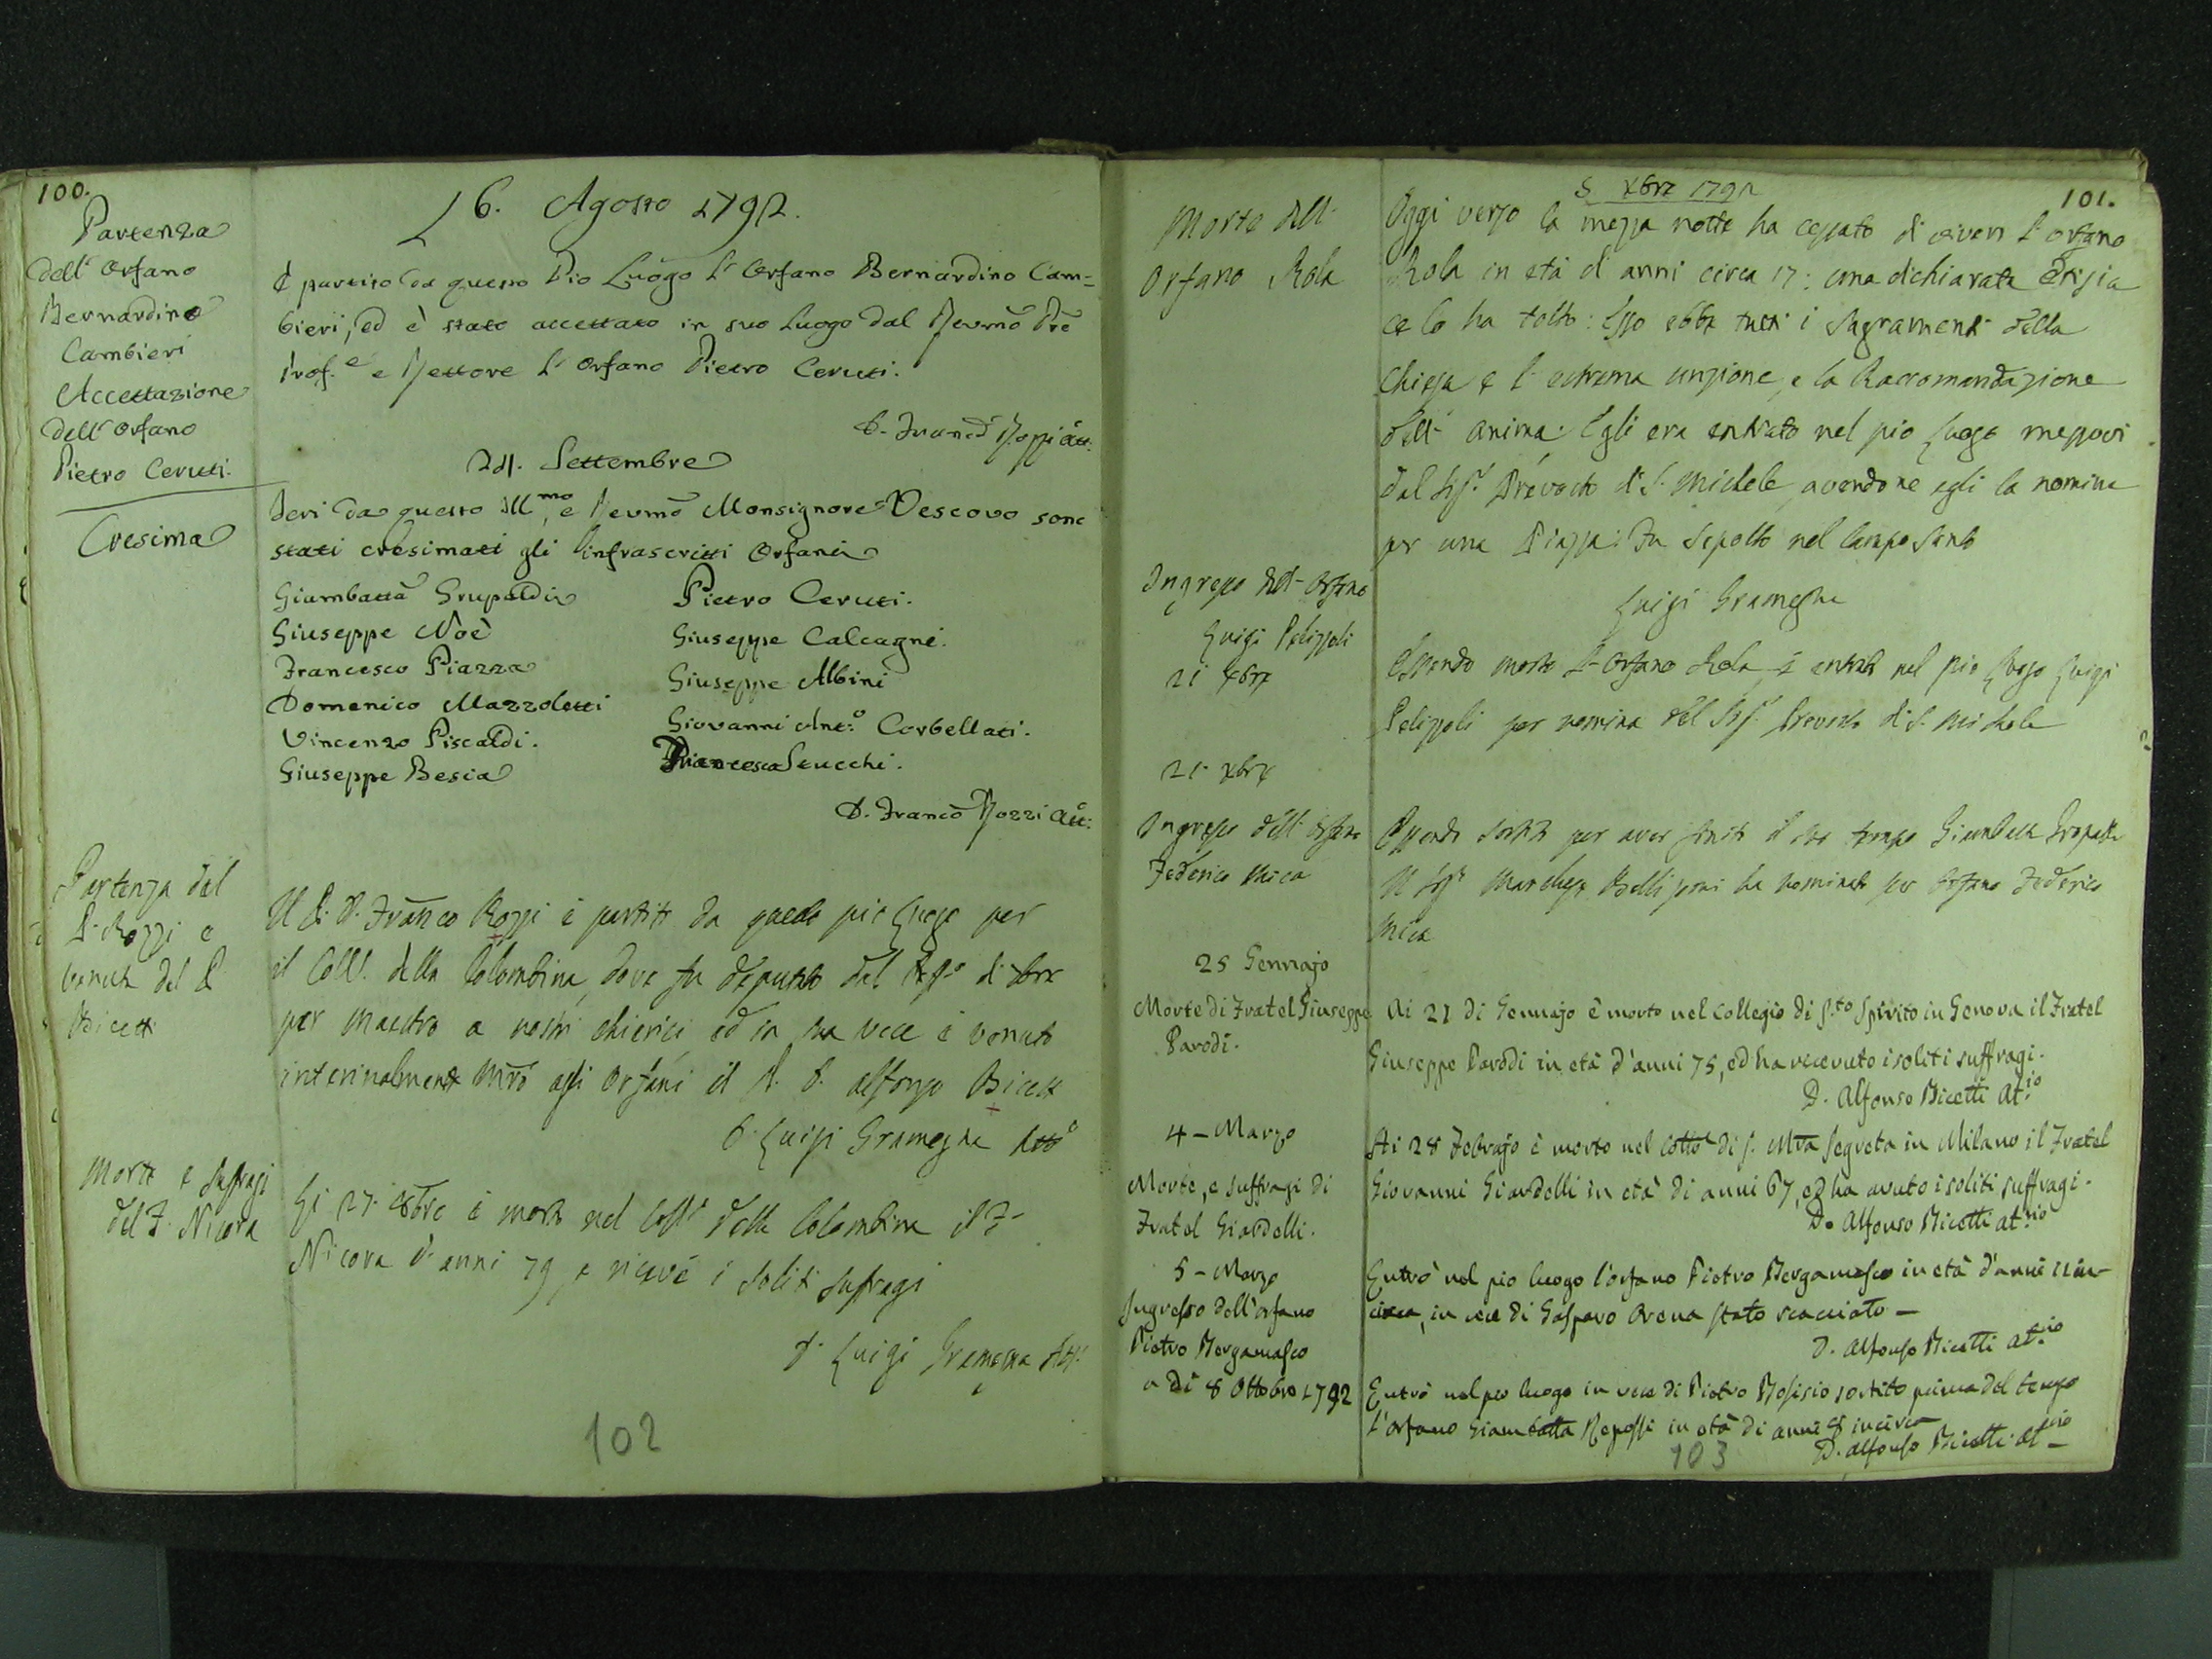 100.
16. Agosto 1792.
Partenza
dell' Orfano
Bernardino
Cambieri
Accettazione
dell' Orfano
Pietro Ceruti.
È partito da questo Pio Luogo l'Orfano Bernardino Cam=
bieri, ed è stato accettato in suo Luogo dal Revmõ Prẽ
Prof.e e Rettore l'Orfano Pietro Ceruti.
D. Rozzi att:
24. Settembre
Cresima
Jeri da questo Ill.mo e Revmõ Monsignore Vescovo sono
stati cresimati gli infrascritti Orfani
Giambattã Grupaldi
Giuseppe Noè
Francesco Piazza
Domenico Mazzoletti
Vincenzo Piscaldi.
Giuseppe Bescia
Pietro Ceruti.
Giuseppe Calcagni.
Giuseppe Albini
Giovanni Ant:o Corbellati.
Francesco
D. Franco Rozzi att:
Partenza del
P. Rozzi e
venuta del P.
Bicetti
Il P. D. Franco Rozzi è partito da questo pio Luogo per
il Coll. della Colombina, dove fu deputato dal
per Maestro a nostri chierici ed in sua vece è venuto
interinalmente Mrõ agli Orfani il P. D. Alfonso Bicetti
D. Luigi Gramegna Atto
Morte e Suffragi
del F. Nicora
Li 27. 8bre è morto nel Coll. della Colombina il F.
Nicora d'anni 79 e ricevè i soliti suffragi
D. Luigi Gramegna Att.
102
101.
5 Xbre 1792
Morte dell'
Orfano Rola
Oggi verso la mezza notte ha cessato di vivere l'orfano
Rola in età d'anni circa 17: una dichiarata Etisia
ce lo ha tolto: Esso ebbe tutti i Sagramenti della
Chiesa e l'estrema unzione, e la Raccomandazione
dell' anima. Egli era entrato nel pio Luogo messovi
dal Sigr. Prevosto di S. Michele avendone egli la nomina
per una Piazza: Fu sepolto nel Campo Santo
Luigi Gramegna
Ingresso dell' Orfano
Luigi
21 Xbre
Essendo morto l'Orfano Rola è entrato nel pio Luogo Luigi
per nomina del Sigr. Prevosto di S. Michele
21 Xbre
Ingresso dell' Orfano
Federico Mica
Essendo sortito per aver finito il suo tempo
Il Sigr. Marchese ha nominato per Orfano Federico
Mica
25 Gennajo
Morte di Fratel Giuseppe
Parodi.
Ai 21 di Gennajo è morto nel Collegio di S.to Spirito in Genova il Fratel
Giuseppe Parodi in età d'anni 75, ed ha ricevuto i soliti suffragi.
D. Alfonso Bicetti At.rio
4 - Marzo
Morte, e suffragi di
Fratel Giardelli.
Ai 28 Febrajo è morto nel Collo di S. Mria Segreta in Milano il Fratel
Giovanni Giardelli in età di anni 67, ed ha avuto i soliti suffragi.
D. Alfonso Bicetti at.rio
5 - Marzo
Ingresso dell'orfano
Pietro Bergamasco
Entrò nel pio luogo l'orfano Pietro Bergamasco in età d'anni 11 in
circa, in vece di Gasparo Orena stato scacciato -
D. Alfonso Bicetti at.rio
a dì 8 Ottobre 1792
Entrò nel pio luogo in vece di Pietro sortito prima del tempo
l'orfano Giambatta Repossi in età di anni 8 incirca
D. Alfonso Bicetti at.rio
103